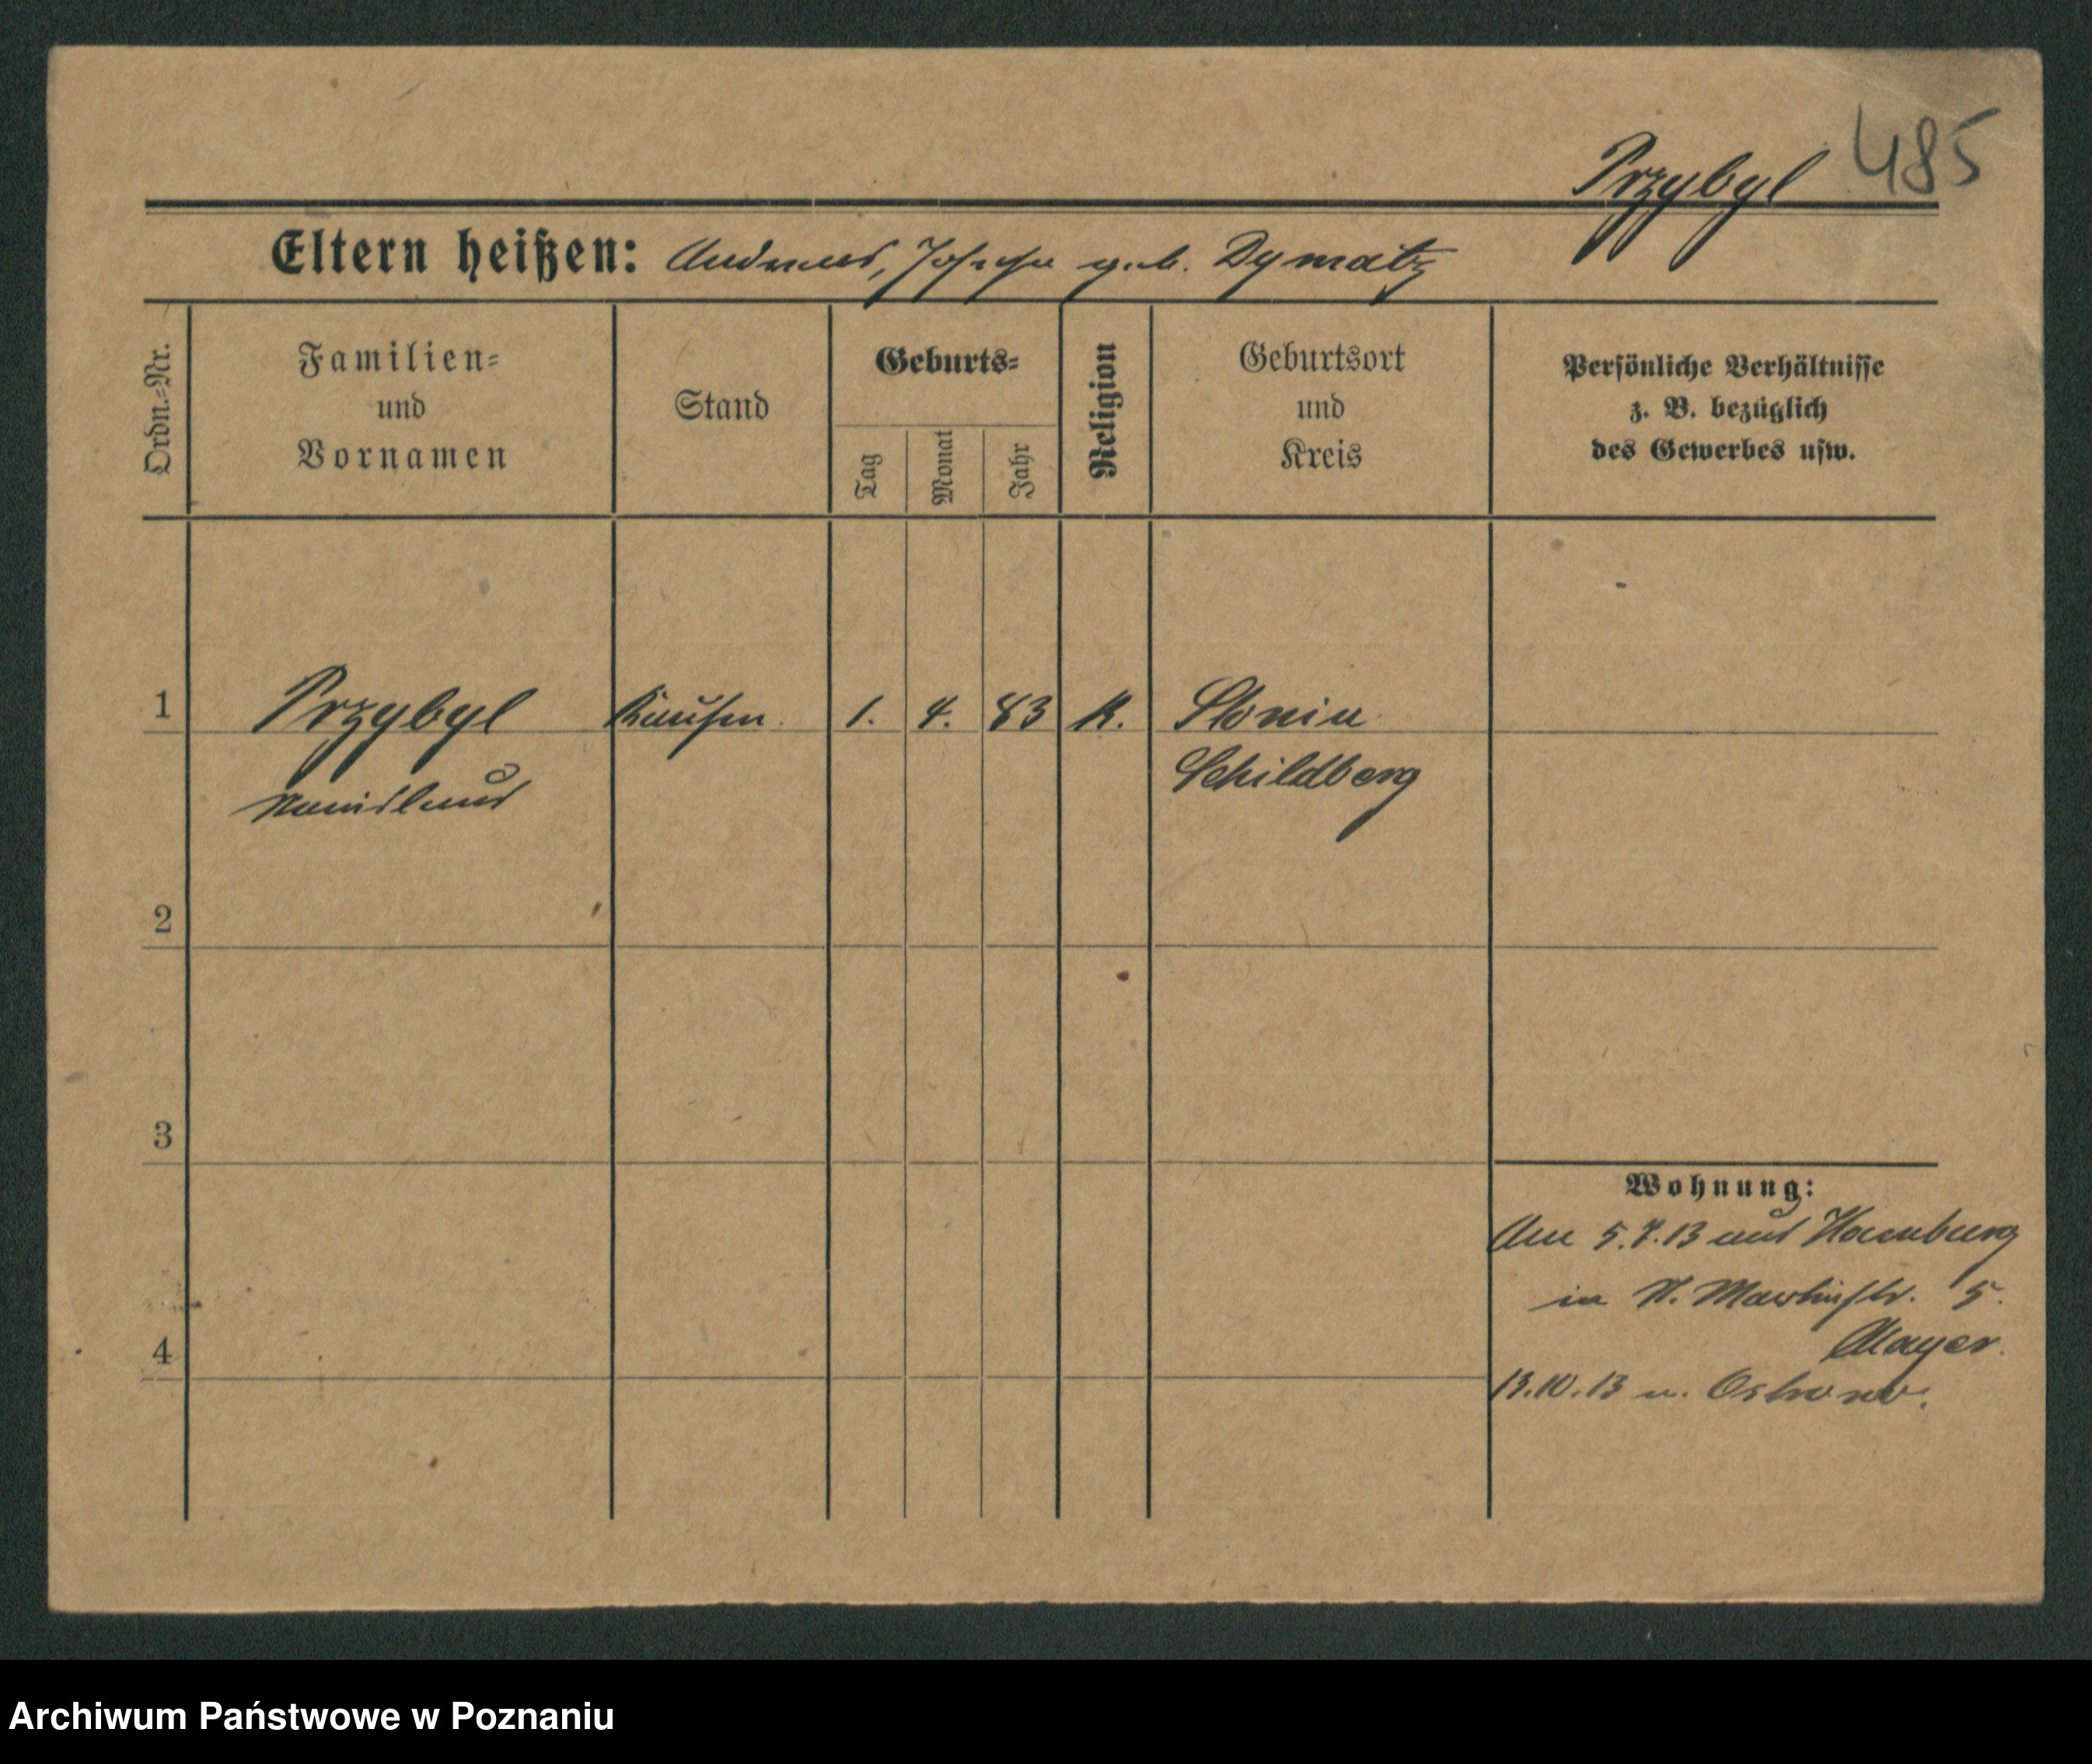 Przybyl 485
Eltern heißen: Andreas, Josefa geb. Dymatz
Ordn.-Nr.
Familien-
und
Vornamen
Stand
Geburts-
Tag
Monat
Jahr
Religion
Geburtsort
und
Kreis
Persönliche Verhältnisse
z. B. bezüglich
des Gewerbes usw.
1 Przybyl 1. 4. 83 K. Slonin
Schildberg
2
3
Wohnung:
Am 5.7.13 aus Hamburg
in St. Martinstr. 5.
4
Mayer.
13.10.13 n. Ostrowo.
Archiwum Państwowe w Poznaniu